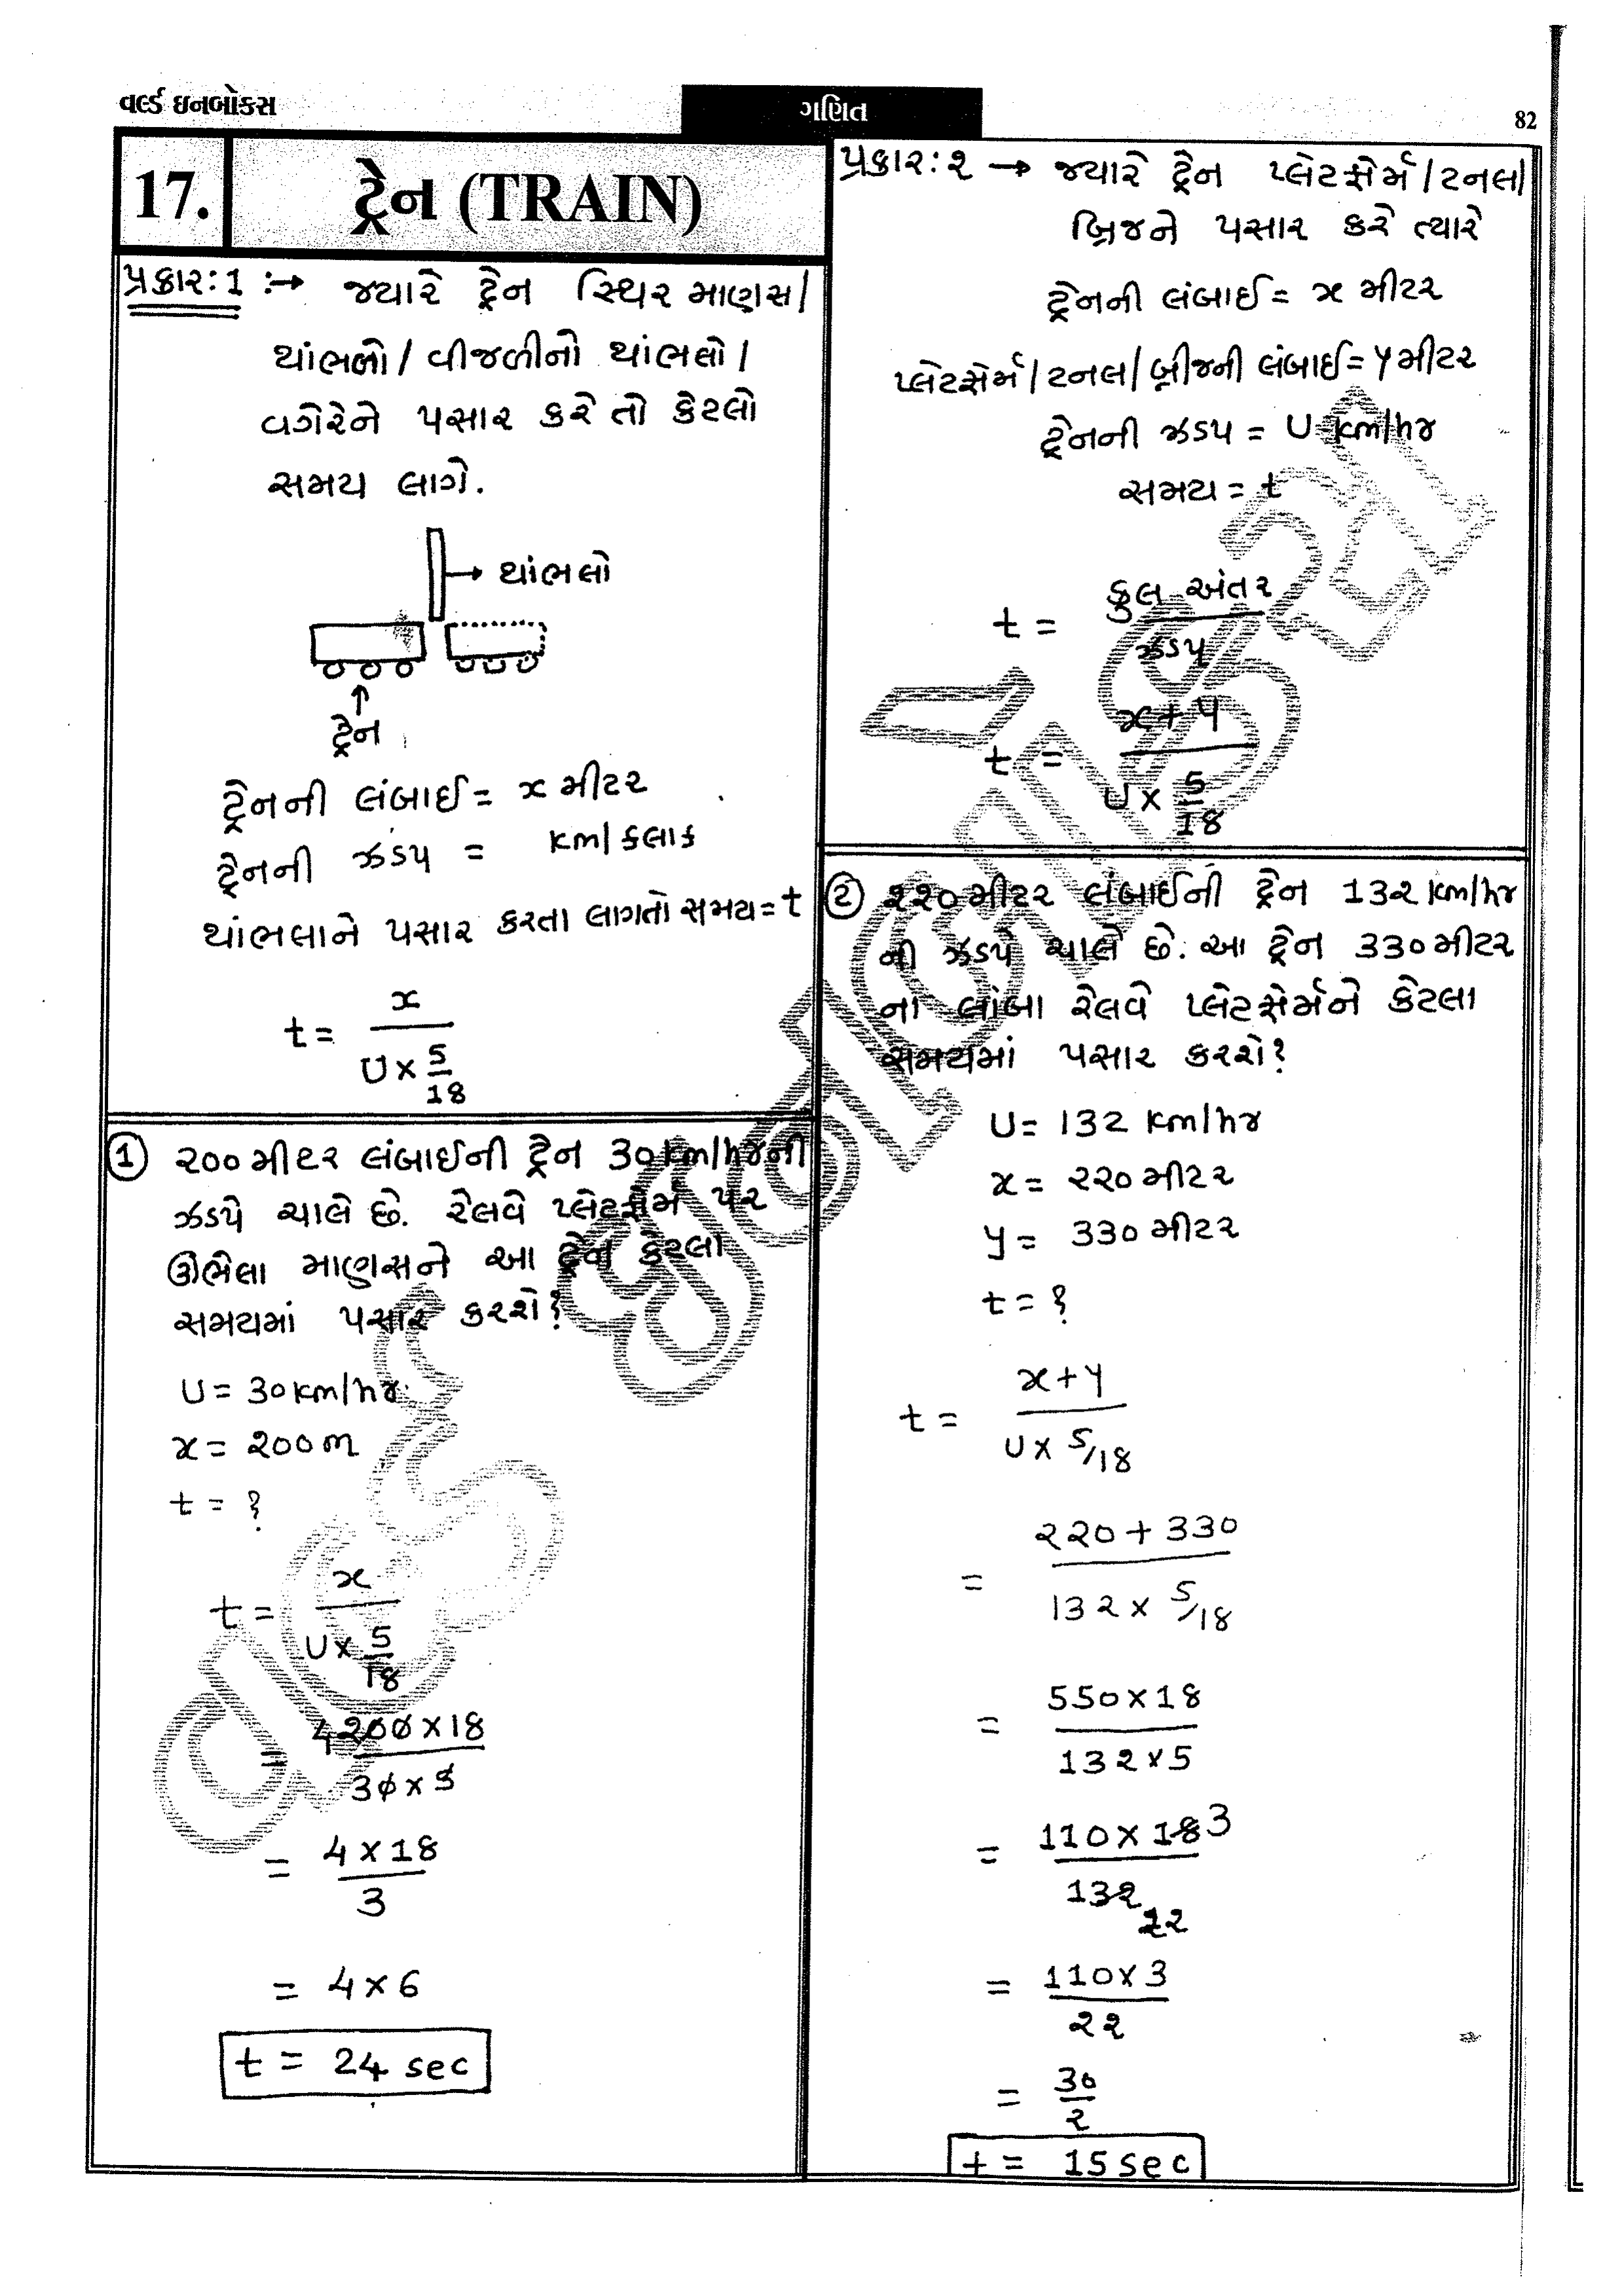 વર્લ્ડ ઇનબોક્સ
ગણિત
82
17.
ટ્રેન (TRAIN)
પ્રકાર:1 :→ જ્યારે ટ્રેન સ્થિર માણસ/
થાંભલો / વીજળીનો થાંભલો /
વગેરેને પસાર કરે તો કેટલો
સમય લાગે.
→ થાંભલો
↑
ટ્રેન
ટ્રેનની લંબાઈ = x મીટર
ટ્રેનની ઝડપ = km/કલાક
થાંભલાને પસાર કરતા લાગતો સમય = t
t = x / U × 5/18
① ૨૦૦મીટર લંબાઈની ટ્રૈન 30 km/hrની
ઝડપે ચાલે છે. રેલવે પ્લેટફોર્મ પર
ઊભેલા માણસને આ ટ્રેન કેટલા
સમયમાં પસાર કરશે?
U = 30 km/hr
x = ૨૦૦m
t = ?
t = x / U × 5/18
= 4 ૨૦૦ × 18 / 30 × 5
= 4 × 18 / 3
= 4 × 6
t = 24 sec
પ્રકાર:૨ → જ્યારે ટ્રેન પ્લેટફોર્મ/ટનલ/
બ્રિજને પસાર કરે ત્યારે
ટ્રેનની લંબાઈ = x મીટર
પ્લેટફોર્મ/ટનલ/બ્રીજની લંબાઈ = y મીટર
ટ્રેનની ઝડપ = U km/hr
સમય = t
t = કુલ અંતર / ઝડપ
t = x + y / U × 5/18
② ૨૨૦મીટર લંબાઈની ટ્રેન 13૨ km/hr
ની ઝડપે ચાલે છે. આ ટ્રેન 330મીટર
ના લાંબા રેલવે પ્લેટફોર્મને કેટલા
સમયમાં પસાર કરશે?
U = 132 km/hr
x = ૨૨૦મીટર
y = 330મીટર
t = ?
t = x + y / U × 5/18
= ૨૨૦ + 330 / 13૨ × 5/18
= 550 × 18 / 13૨ × 5
= 110 × 18 3 / 13૨ ૨૨
= 110 × 3 / ૨૨
= 30 / ૨
t = 15 sec